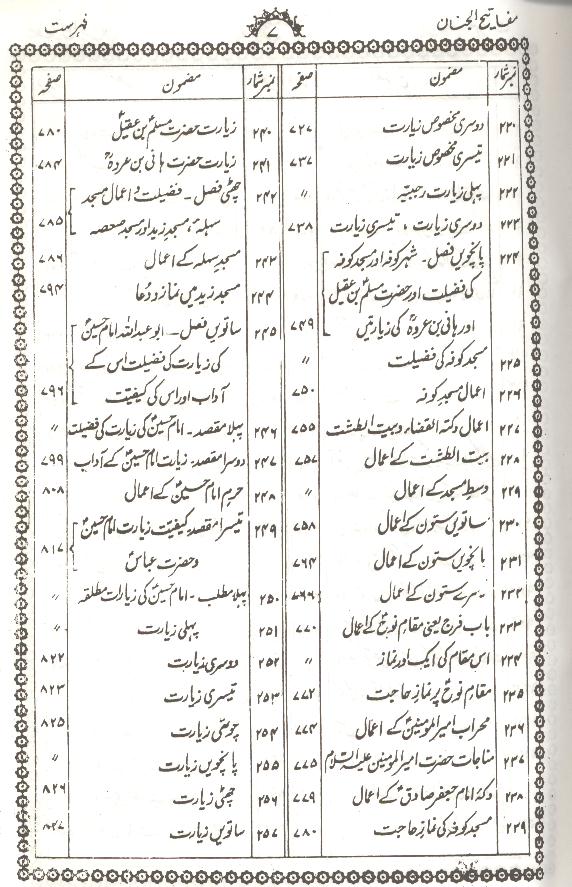 مفاتیح الجنان
۷
فہرست
نمبر شمار مضمون صفحہ
۲۲۰ دوسری مخصوص زیارت ۷۲۷
۲۲۱ تیسری مخصوص زیارت ۷۳۷
۲۲۲ پہلی زیارت رجبیہ 〃
۲۲۳ دوسری زیارت ، تیسری زیارت ۷۳۸
۲۲۴ پانچویں فصل ۔ شہر کوفہ اور مسجد کوفہ
کی فضیلت اور حضرت مسلمؑ بن عقیل
اور ہانی بن عروہؒ کی زیارتیں ۷۴۹
۲۲۵ مسجد کوفہ کی فضیلت 〃
۲۲۶ اعمال مسجد کوفہ ۷۵۰
۲۲۷ اعمال دکۃ القضاء وبیت الطشت ۷۵۵
۲۲۸ بیت الطشت کے اعمال ۷۵۷
۲۲۹ وسط مسجد کے اعمال 〃
۲۳۰ ساتویں ستون کے اعمال ۷۵۸
۲۳۱ پانچویں ستون کے اعمال ۷۶۴
۲۳۲ ستون کے اعمال ۷۶۶
۲۳۳ باب فرج یعنی مقام نوحؑ کے اعمال ۷۷۰
۲۳۴ اس مقام کی ایک اور نماز 〃
۲۳۵ مقام نوحؑ پر نماز حاجت ۷۷۲
۲۳۶ محراب امیر المومنینؑ کے اعمال ۷۷۴
۲۳۷ مناجات حضرت امیر المومنین علیہ السلام ۷۷۵
۲۳۸ دکۂ امام جعفر صادقؑ کے اعمال ۷۷۹
۲۳۹ مسجد کوفہ کی نماز حاجت ۷۸۰
نمبر شمار مضمون صفحہ
۲۴۰ زیارت حضرت مسلمؑ بن عقیلؑ ۷۸۰
۲۴۱ زیارت حضرت ہانی بن عروہؒ ۷۸۴
۲۴۲ چھٹی فصل ۔ فضیلت و اعمال مسجد
سہلہ، مسجد زید اور مسجد صعصہ ۷۸۵
۲۴۳ مسجد سہلہ کے اعمال ۷۸۶
۲۴۴ مسجد زید میں نماز و دعا ۷۹۴
۲۴۵ ساتویں فصل ۔ ابوعبداللہ امام حسینؑ
کی زیارت کی فضیلت اس کے
آداب اور اس کی کیفیت ۷۹۶
۲۴۶ پہلا مقصد ۔ امام حسینؑ کی زیارت کی فضیلت 〃
۲۴۷ دوسرا مقصد ۔ زیارت امام حسینؑ کے آداب ۷۹۹
۲۴۸ حرم امام حسینؑ کے اعمال ۸۰۸
۲۴۹ تیسرا مقصد کیفیت زیارت امام حسینؑ
و حضرت عباسؑ ۸۱۷
۲۵۰ پہلا مطلب ۔ امام حسینؑ کی زیارات مطلقہ 〃
۲۵۱ پہلی زیارت 〃
۲۵۲ دوسری زیارت ۸۲۲
۲۵۳ تیسری زیارت ۸۲۳
۲۵۴ چوتھی زیارت ۸۲۵
۲۵۵ پانچویں زیارت 〃
۲۵۶ چھٹی زیارت ۸۲۶
۲۵۷ ساتویں زیارت ۸۲۷